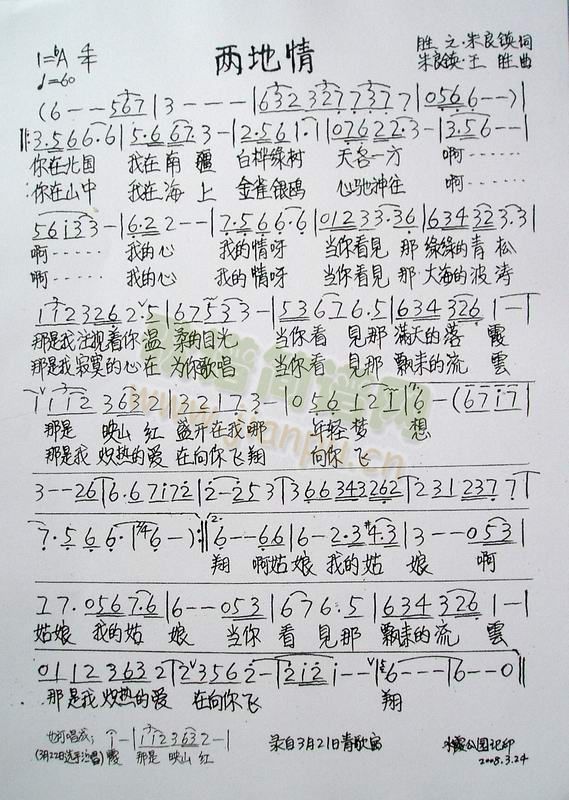 两地情
1=bA 4/4
♩=60
胜之·朱良镇 词
朱良镇·王胜 曲
(6 - - 567 | 3 - - - | 632 327 737 7 | 056 6 - -) |
3.5 6 6·6 | 5·6 67 3 - | 2·5 6 1·1 | 0762 2·3 - | 3.5 6 - - |
你在北国 我在南疆 白桦绿树 天各一方 啊……
你在山中 我在海上 金雀银鸥 心驰神往 啊……
56 i3 3 - | 6·2 2 - - | 7·5 6 6·6 | 0123 3·36 | 634 323 3.3 |
啊…… 我的心 我的情呀 当你看見 那 绿绿的青松
啊…… 我的心 我的情呀 当你看見 那 大海的波涛
112326 2 5 | 67 53 3 - | 53 676.5 | 634 326 | 1 - |
那是我注視着你温柔的目光 当你看見那 滿天的落霞
那是我寂寞的心在为你歌唱 当你看見那 飘来的流雲
1112 363 | 132 1 7 3 - | 056 12 1 | 6 - (67 17 |
那是 映山红 盛开在我哪 年轻梦想
那是我炽热的爱 在向你飞翔 向你飞
3 - - 26 | 6·67 172 | 2 - 253 | 366 343262 | 231 237 7 |
7·5 6 6· | 6 - ) :| 6 - - 66 | 6 - 2·3 #4·3 | 3 - - 053 |
翔 啊姑娘 我的姑娘 啊
17·056 7·6 | 6 - - 053 | 676·5 | 634 326 | 1 - |
姑娘 我的姑娘 当你看見那 飘来的流雲
01 12 363 2 | 2 3562 - | 2i2 i - - | 6 - - - | 6 - - 0 |
那是我炽热的爱 在向你飞 翔
也可唱成: 1 - | 1123632 - |
(3月22日选手演唱) 霞 那是 映山 红
录自3月21日青歌赛
2008.3.24